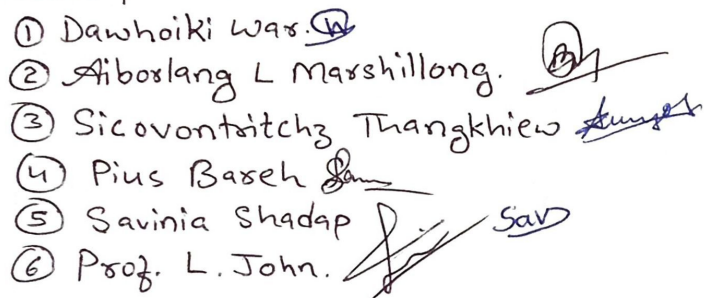 ① Dawhoiki War.
② Aiborlang L Marshillong.
③ Sicovontritchz Thangkhiew
④ Pius Bareh
⑤ Savinia Shadap Sav
⑥ Prof. L. John.